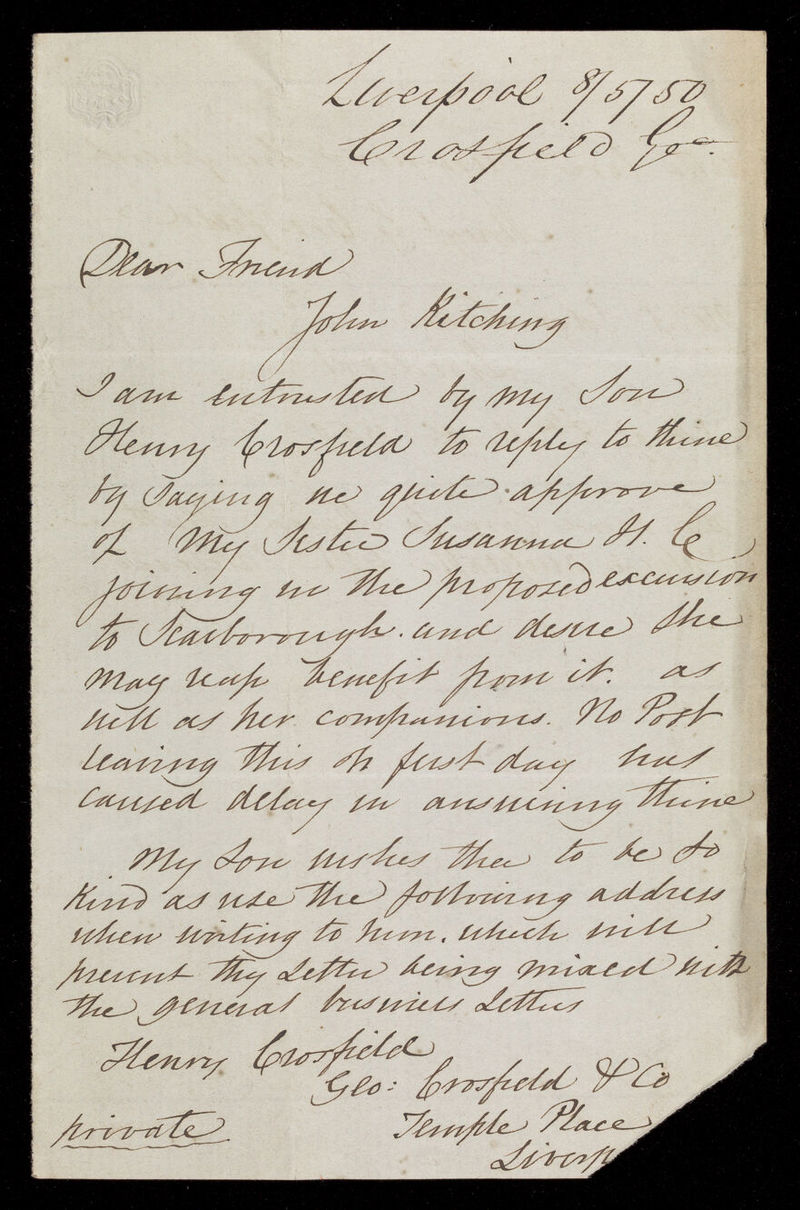 Liverpool 8/5/50
Crosfield Geo.
Dear Friend
John Kitching
I am entrusted by my Son
Henry Crosfield to reply to thine
by saying we quite approve
of My Sister Susanna H. C
joining in the proposed excursion
to Scarborough. and desire She
may reap benefit from it. as
well as her companions. No Post
leaving this on first day has
caused delay in answering thine
My Son wishes thee to be So
Kind as use the following address
when writing to him. which will
prevent thy Letter being mixed with
the general business Letters
Henry Crosfield
Geo: Crosfield & Co
private Temple Place
Liverp